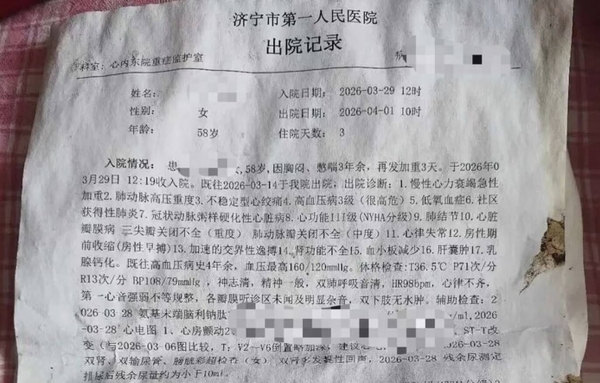 济宁市第一人民医院
出院记录
科室：心内东院重症监护室
姓名
入院日期： 2026-03-29 12时
性别： 女
出院日期： 2026-04-01 10时
年龄： 58岁
住院天数： 3
入院情况： 患 女,58岁,因胸闷、憋喘3年余，再发加重3天。于2026年0
3月29日 12:19收入院。既往2026-03-14于我院出院，出院诊断：1.慢性心力衰竭急性
加重2.肺动脉高压重度3.不稳定型心绞痛4.高血压病3级（很高危）5.低氧血症6.社区
获得性肺炎7.冠状动脉粥样硬化性心脏病8.心功能III级(NYHA分级) 9.肺结节10.心脏
瓣膜病 三尖瓣关闭不全（重度） 肺动脉瓣关闭不全（中度）11.心律失常12.房性期
前收缩(房性早搏)13.加速的交界性逸搏14.肾功能不全15.血小板减少16.肝囊肿17.乳
腺钙化。既往高血压病史4年余，血压最高160/120mmHg。体格检查:T36.5℃ P71次/分
R13次/分 BP108/79mmHg ，神志清，精神一般，双肺呼吸音清，HR98bpm，心律不齐，
第一心音强弱不等规整，各瓣膜听诊区未闻及明显杂音，双下肢无水肿。辅助检查：2
026-03-28 氨基末端脑利钠肽
2026
-03-28 心电图 1、心房颤动2 ST-T改
变（与2026-03-06图比较，T：V2~V6倒置略加深，建议
双肾、双输尿管、膀胱彩超检查（女） 双肾 多发 性回声。2026-03-28 残余尿测定
排尿后残余尿量约为小于10ml